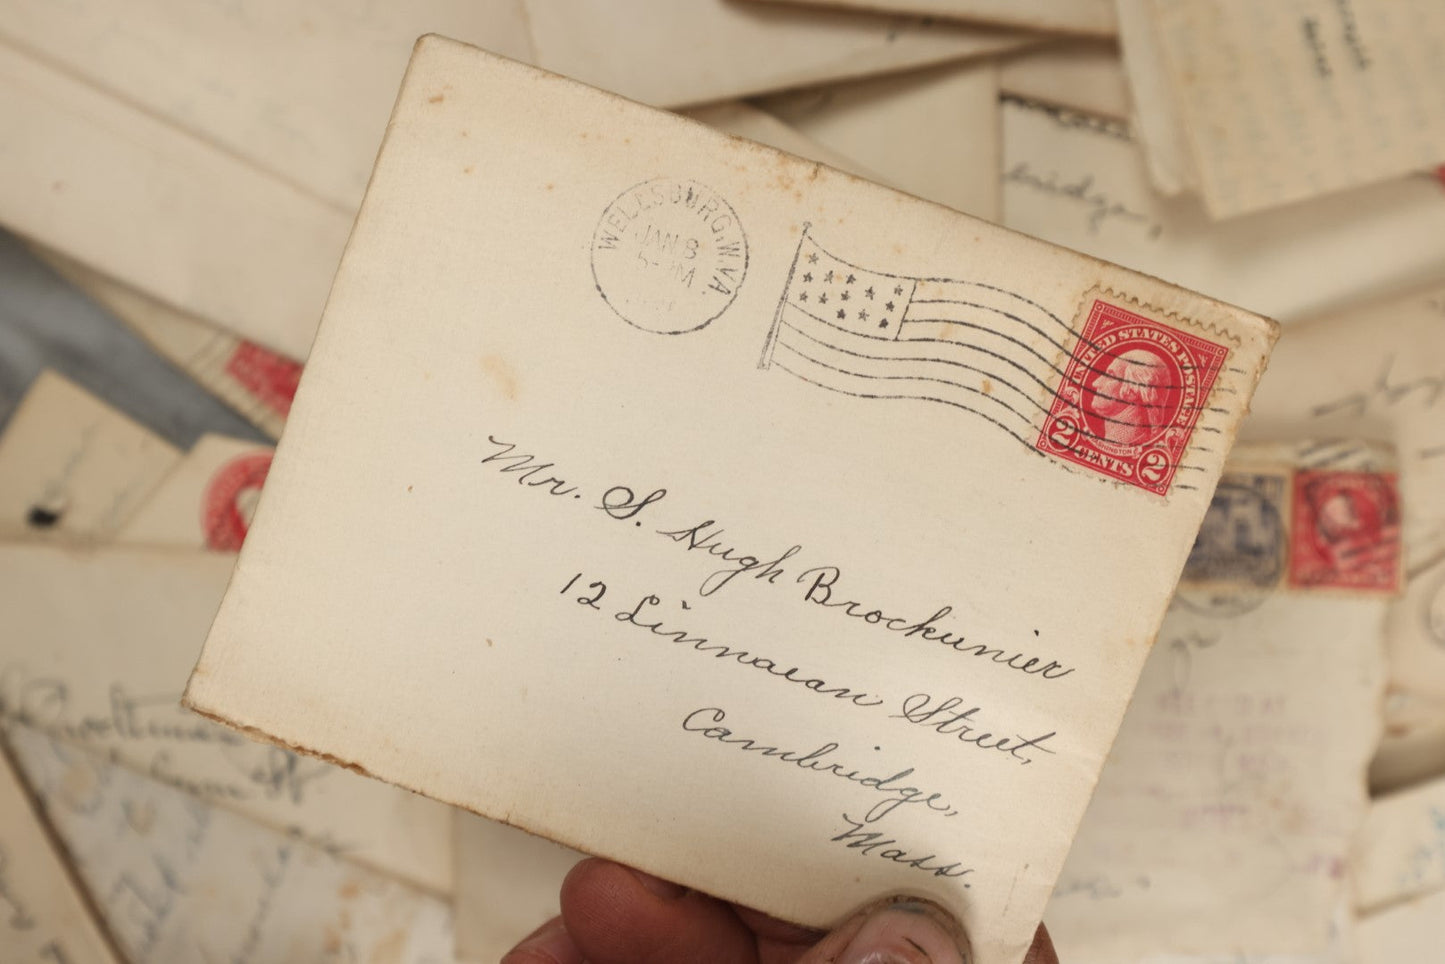 WELLSBURG, W. VA.
JAN 8
5 - PM
UNITED STATES POSTAGE
WASHINGTON
2 CENTS 2
Mr. S. Hugh Brockunier
12 Linnaean Street,
Cambridge,
Mass.
bridge,